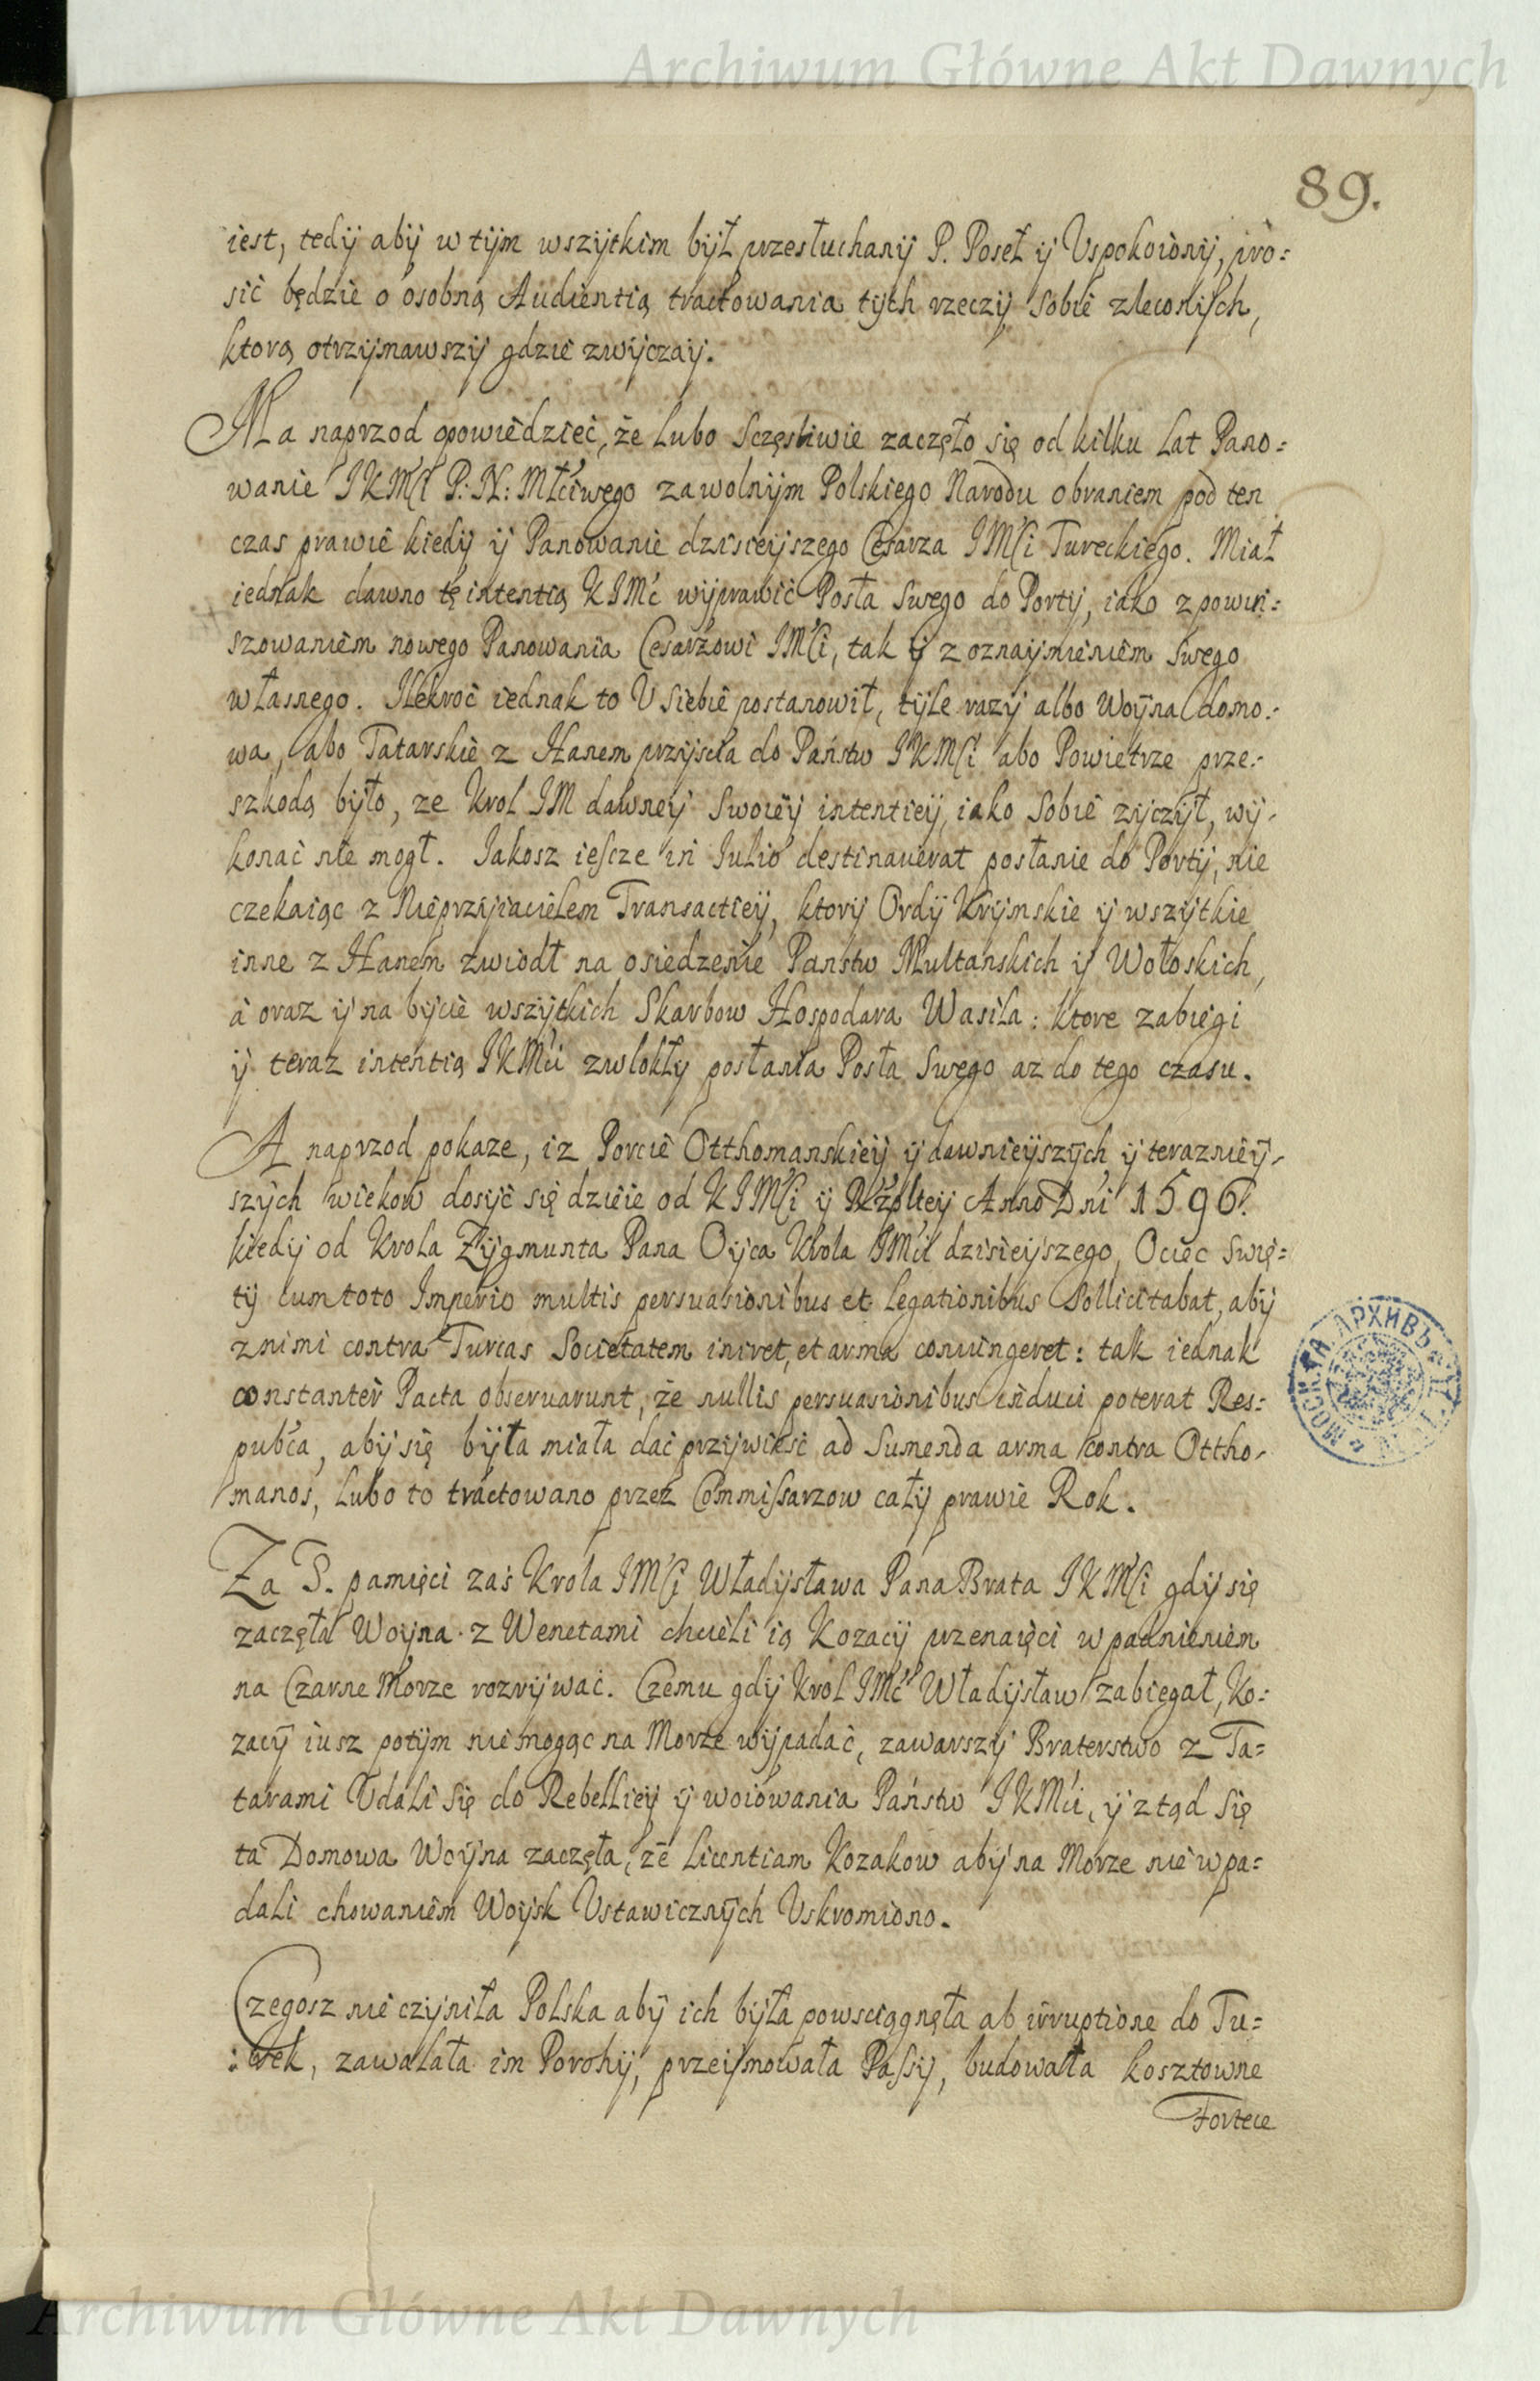 Archiwum Główne Akt Dawnych
89.
iest, tedy aby w tym wszytkim był przesłuchany P. Poseł y Vspokoiony, pro=
sić będzie o osobną Audientią tractowania tych rzeczy sobie zleconych,
ktorą otrzymawszy gdzie zwyczay.
Ma naprzod opowiedzieć, że lubo Sczęsliwie zaczęło się od kilku lat Pano=
wanie IKMCi P: N: Młćiwego za wolnym Polskiego Narodu obraniem pod ten
czas prawie kiedy y Panowanie dzisieyszego Cesarza IMCi Tureckiego. Miał
iednak dawno tę intentią KIMć wyprawić Posła Swego do Porty, iako z powin=
szowaniem nowego Panowania Cesarzowi IMCi, tak y z oznaymieniem Swego
własnego. Ilekroć iednak to V siebie postanowił, tyle razy albo Woyna domo=
wa, abo Tatarskie z Hanem przyscia do Państw IKMCi abo Powietrze prze=
szkodą było, ze Krol IM dawney Swoiey intentiey, iako Sobie zyczył, wy=
konać nie mogł. Iakosz iescze in Iulio destinauerat posłanie do Porty, nie
czekaiąc z Nieprzyiacielem Transactiey, ktory Ordy Krymskie y wszytkie
inne z Hanem zwiodł na osiedzenie Panstw Multanskich y Wołoskich,
a oraz y na bycie wszytkich Skarbow Hospodara Wasila: ktore zabiegi
y teraz intentią IKMći zwlokły posłania Posła Swego az do tego czasu.
A naprzod pokaze, iz Porcie Otthomanskiey y dawnieyszych y terazniey=
szych wiekow dosyć się dzieie od KIMCi y Rzpltey Anno Dni 1596.
kiedy od Krola Zygmunta Pana Oyca Krola IMći dzisieyszego, Ociec Swię=
ty cum toto Imperio multis persuasionibus et legationibus Sollicitabat, aby
z nimi contra Turcas Societatem iniret, et arma coniungeret: tak iednak
constanter Pacta obseruarunt, że nullis persuasionibus induci poterat Res=
pubca, aby się była miała dać przywieść ad Sumenda arma contra Ottho=
manos, lubo to tractowano przez Commissarzow cały prawie Rok.
Za S. pamięci zaś Krola IMCi Władysława Pana Brata IKMCi gdy się
zaczęła Woyna z Wenetami chcieli ią Kozacy przenaięci wpadnieniem
na Czarne Morze rozrywać. Czemu gdy Krol IMć Władysław zabiegał, Ko=
zacy iusz potym nie mogąc na Morze wypadać, zawarszy Braterstwo z Ta=
tarami Vdali się do Rebelliey y woiowania Państw IKMći, y ztąd się
ta Domowa Woyna zaczęła, że licentiam Kozakow aby na Morze nie wpa=
dali chowaniem Woysk Vstawicznych Vskromiono.
Czegosz nie czyniła Polska aby ich była powsciągnęła ab irruptione do Tu=
:rek, zawalała im Porohy, przeymowała Passy, budowała kosztowne
Fortece
МОСКВА АРХИВЪ
Archiwum Główne Akt Dawnych